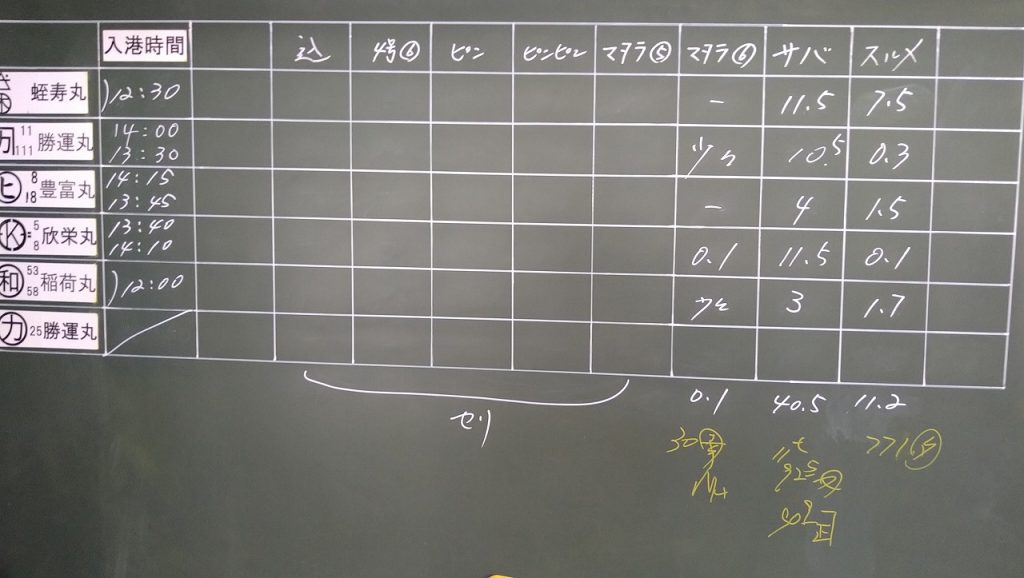 入港時間 込 4号⑥ ピン ピンピン マダラ⑤ マダラ⑥ サバ スルメ
蛭寿丸 )12:30 - 11.5 7.5
11 111 勝運丸 14:00 13:30 少々 10.5 0.3
ヒ 8 18 豊富丸 14:15 13:45 - 4 1.5
K 5 8 欣栄丸 13:40 14:10 0.1 11.5 0.1
和 53 58 稲荷丸 )12:00 少々 3 1.7
カ 25 勝運丸
セリ 0.1 40.5 11.2